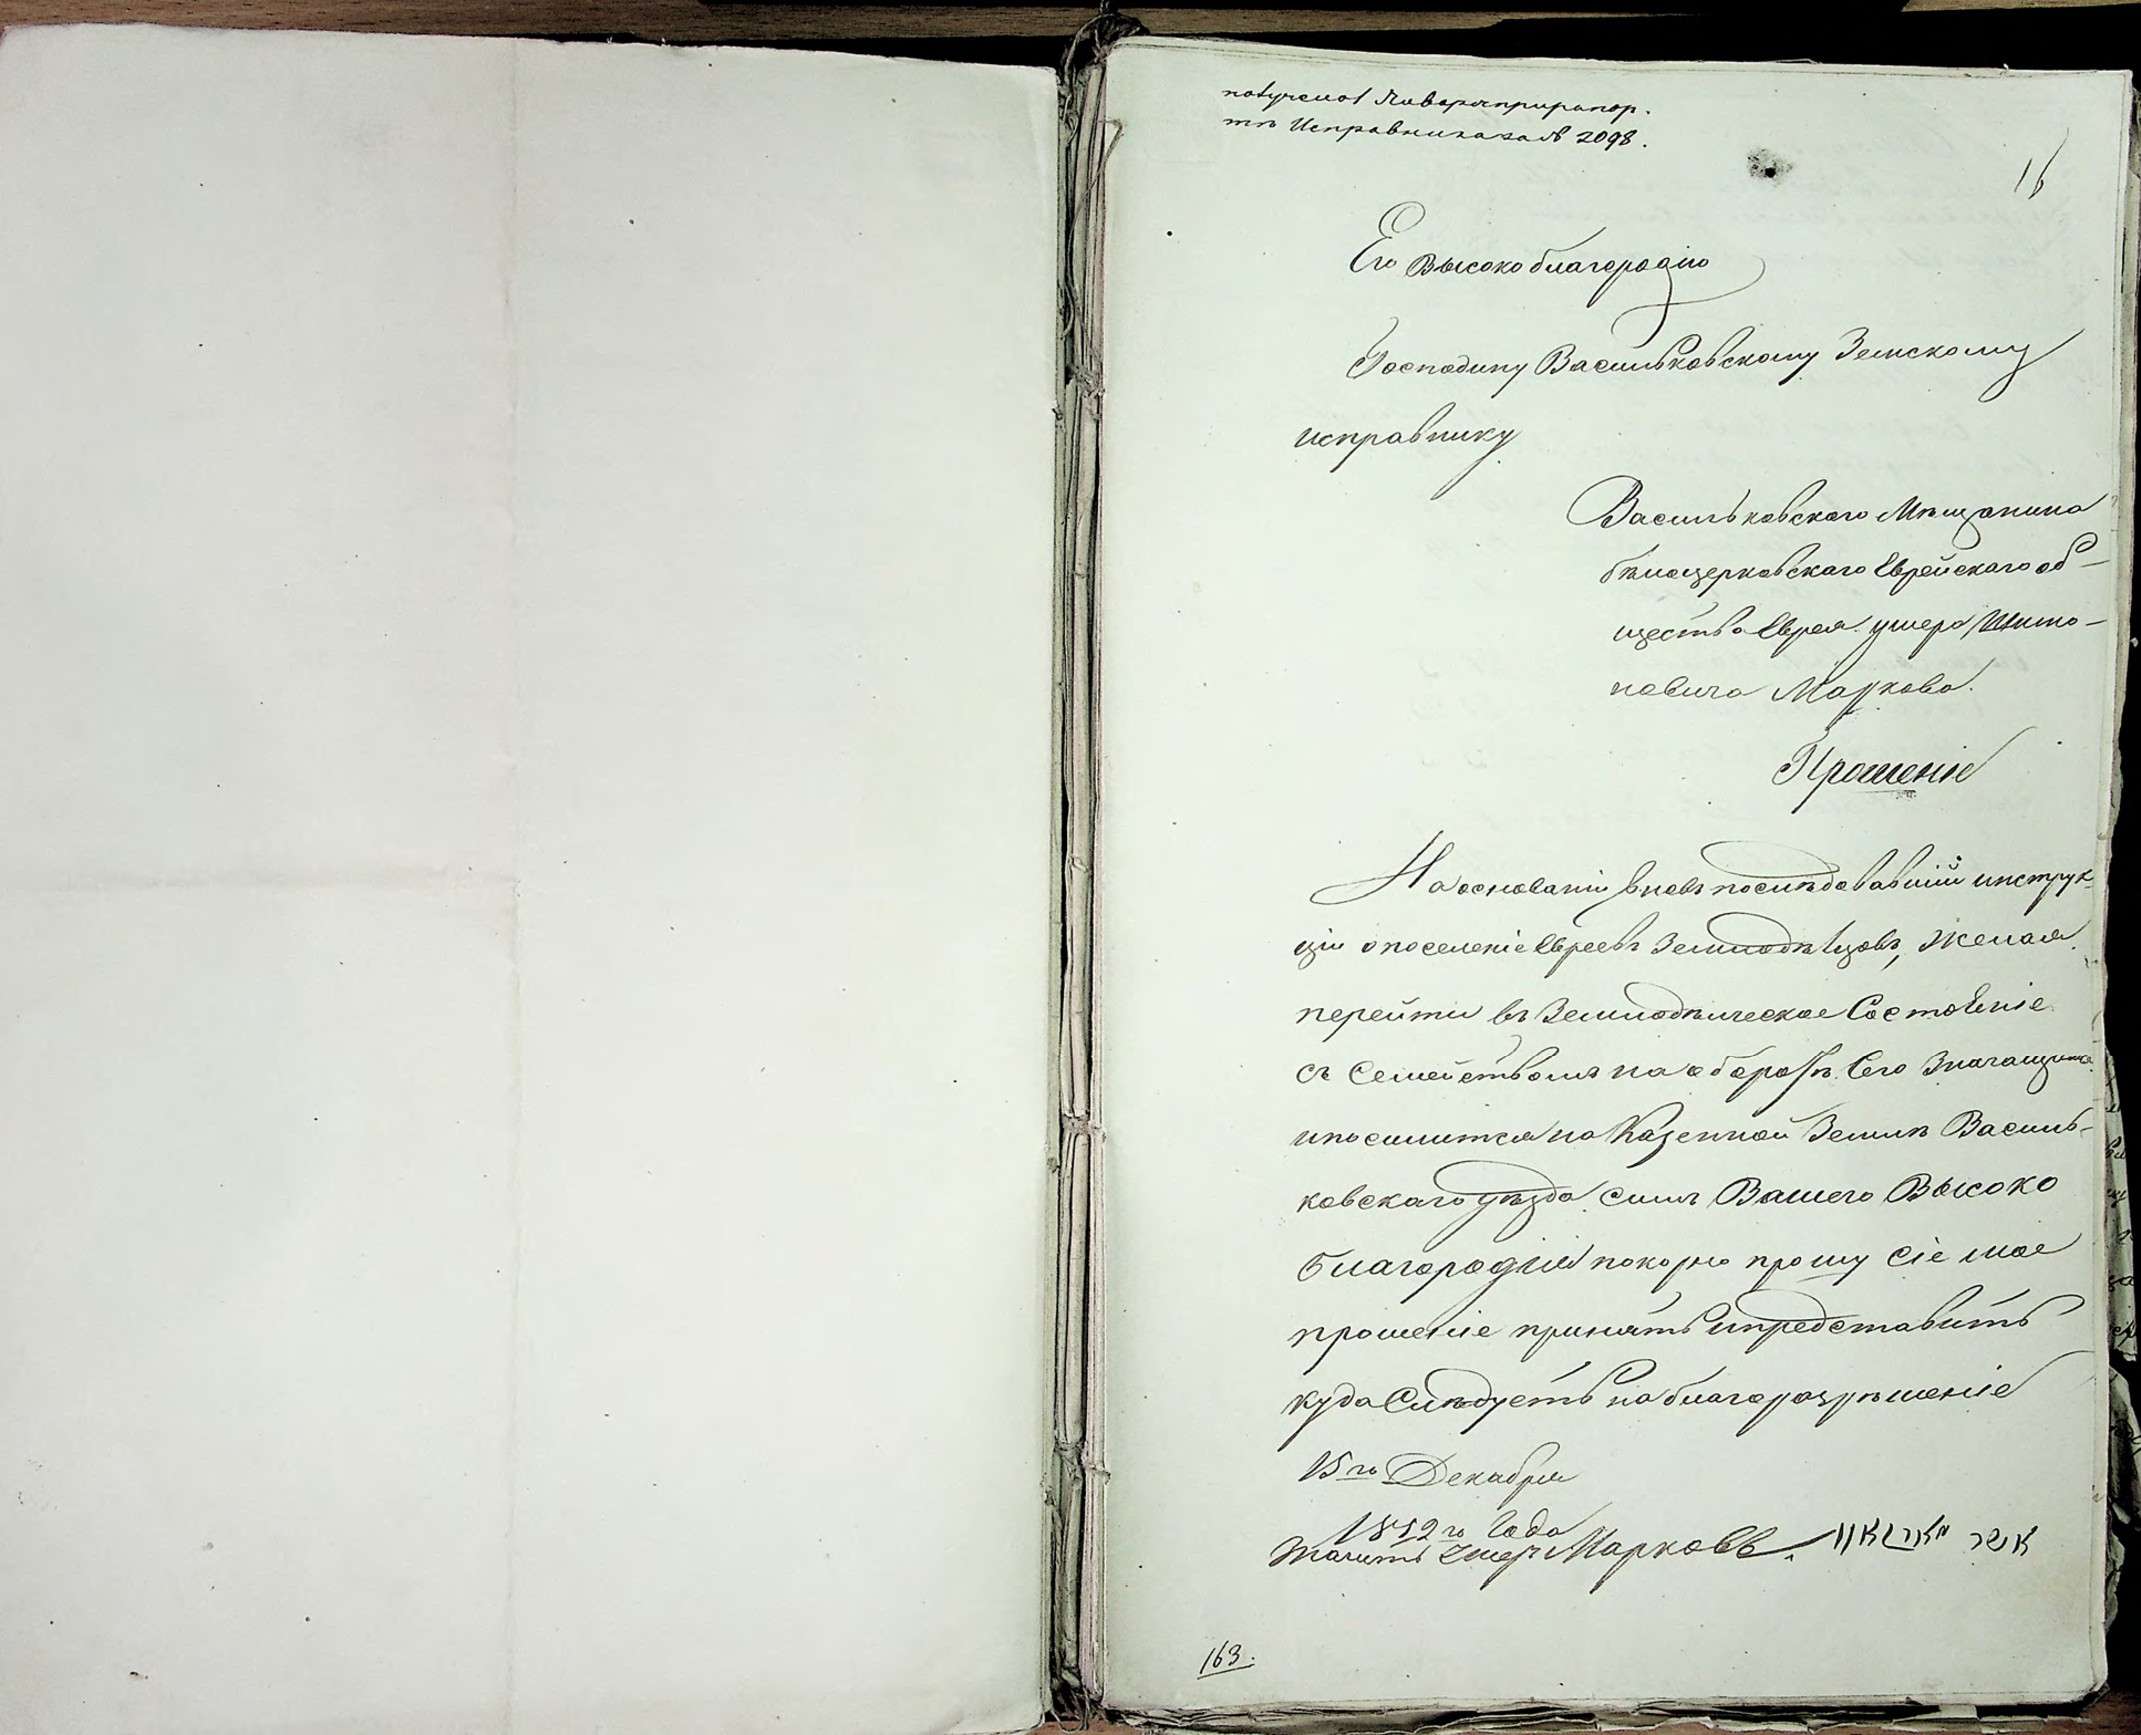 получено 1 Января при рапор-
тѣ Исправника за № 2098.
16
Его Высоко благородію
Господину Васильковскому Земскому
исправнику
Васильковского Мѣщанина
бѣлоцерковскаго Еврейскаго об-
щества Еврея ушера Шимо-
новича Маркова.
Прошеніе
На основаніи вновь последовавшій инструк-
ціи о поселеніе Евреевъ Земледѣлцовъ, Желая
перейти въ Земледѣлческое Состоеніе
съ Семействомъ на оборотѣ Сего Значащимся
и поселится на Казенной Землѣ Василь-
ковскаго уѣзда Симъ Вашего Высоко
благородія покорно прошу Сіе мое
прошеніе принять и представить
куда Слѣдуетъ на благоразрѣшеніе
15го Декабря
1852го Года
Ушеръ Марковъ. אשר מארקאוו
163.